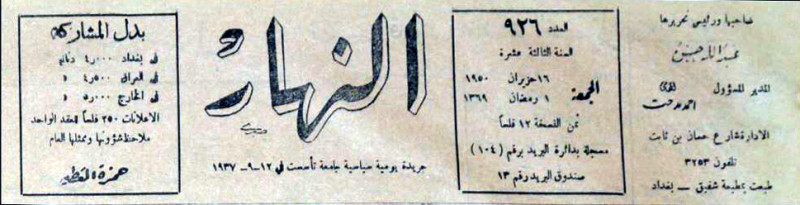 صاحبها ورئيس تحريرها
عبدالله حسن
المدير المسؤول
احمد مدحت
الادارة شارع حسان بن ثابت
تلفون ٣٢٥٣
طبعت بمطبعة شفيق — بغداد
العدد ٩٢٦
السنة الثالثة عشرة
الجمعة
١٦ حزيران ١٩٥٠
١ رمضان ١٣٦٩
ثمن النسخة ١٢ فلساً
مسجلة بدائرة البريد برقم (١٠٤)
صندوق البريد رقم ١٣
النهار
جريدة يومية سياسية جامعة تأسست في ١٢-٩-١٩٣٧
بدل المشاركة
في بغداد ٤٫٠٠٠ دنانير
في العراق ٤٫٥٠٠ »
في الخارج ٥٫٠٠٠ »
الاعلانات ٢٥٠ فلساً للعقد الواحد
ملاحظ شؤونها وممثلها العام
حمزة